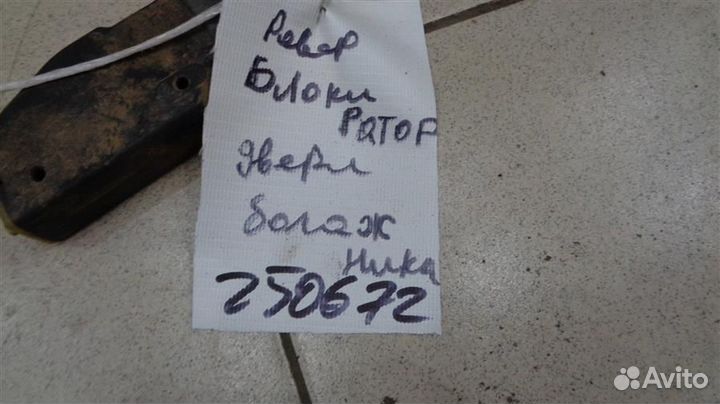 Ровер
Блоки
Ратор
Двери
багаж
ника
250672
Avito